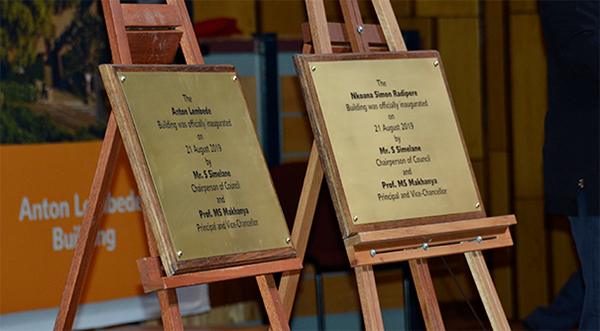 The
Anton Lembede
Building was officially inaugurated
on
21 August 2019
by
Mr. S Simelane
Chairperson of Council
and
Prof. MS Makhanya
Principal and Vice-Chancellor
The
Nkoana Simon Radipere
Building was officially inaugurated
on
21 August 2019
by
Mr. S Simelane
Chairperson of Council
and
Prof. MS Makhanya
Principal and Vice-Chancellor
Anton Lembede
Building